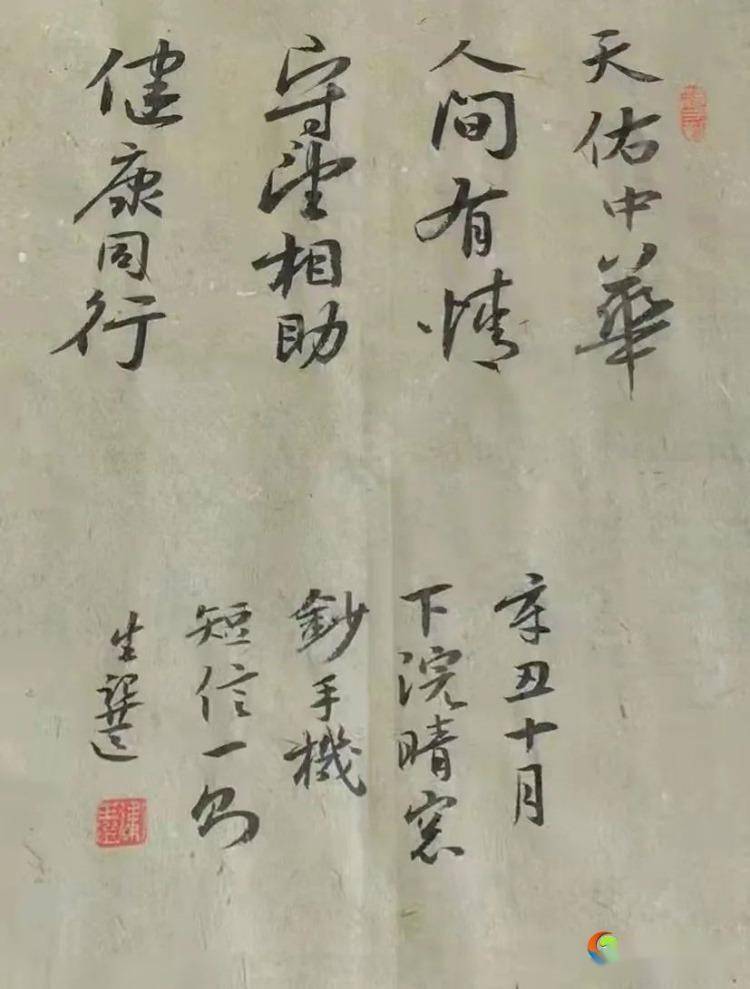 天佑中華
人間有情
守望相助
健康同行
辛丑十月
下浣晴窓
鈔手機
短信一則